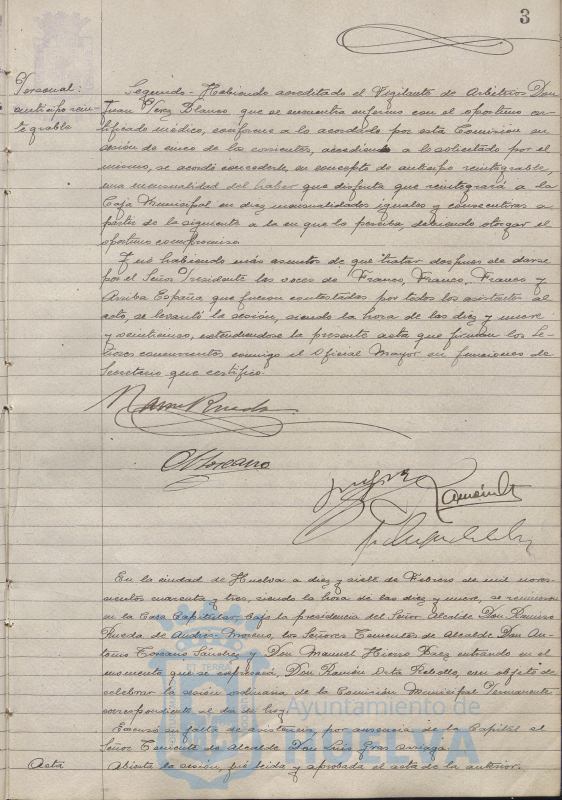 3
Personal:
anticipo rein-
tegrable
Segundo- Habiendo acreditado el Vigilante de Arbitrios Don
Juan Perez Blanco, que se encuentra enfermo con el oportuno cer-
tificado médico, conforme a lo acordado por esta Comisión en
sesión de cinco de los corrientes, accediendo a lo solicitado por el
mismo, se acordó concederle, en concepto de anticipo reintegrable,
una mensualidad del haber que disfruta que reintegrará a la
Caja Municipal en diez mensualidades iguales y consecutivas a
partir de la siguiente a la en que la perciba, debiendo otorgar el
oportuno compromiso.
Y no habiendo más asuntos de que tratar después de darse
por el Señor Presidente las voces de Franco, Franco, Franco y
Arriba España que fueron contestadas por todos los asistentes al
acto, se levantó la sesión, siendo la hora de las diez y nueve
y veinticinco, extendiéndose la presente acta que firman los Se-
ñores concurrentes conmigo el Oficial Mayor en funciones de
Secretario que certifico.
En la ciudad de Huelva a diez y siete de Febrero de mil nove-
cientos cuarenta y tres, siendo la hora de las diez y nueve, se reunieron
en la Casa Capitular, bajo la presidencia del Señor Alcalde Don Ramiro
Rueda de Andrés-Moreno, los Señores Tenientes de Alcalde Don An-
tonio Toscano Sánchez y Don Manuel Hierro Diaz entrando en el
momento que se expresará Don Ramón Orta Rebollo, con objeto de
celebrar la sesión ordinaria de la Comisión Municipal Permanente
correspondiente al dia de hoy.
Excusó su falta de asistencia, por ausencia de la Capital el
Señor Teniente de Alcalde Don Luis Gras
Acta
Abierta la sesión, fué leida y aprobada el acta de la anterior.
Ayuntamiento de
HUELVA